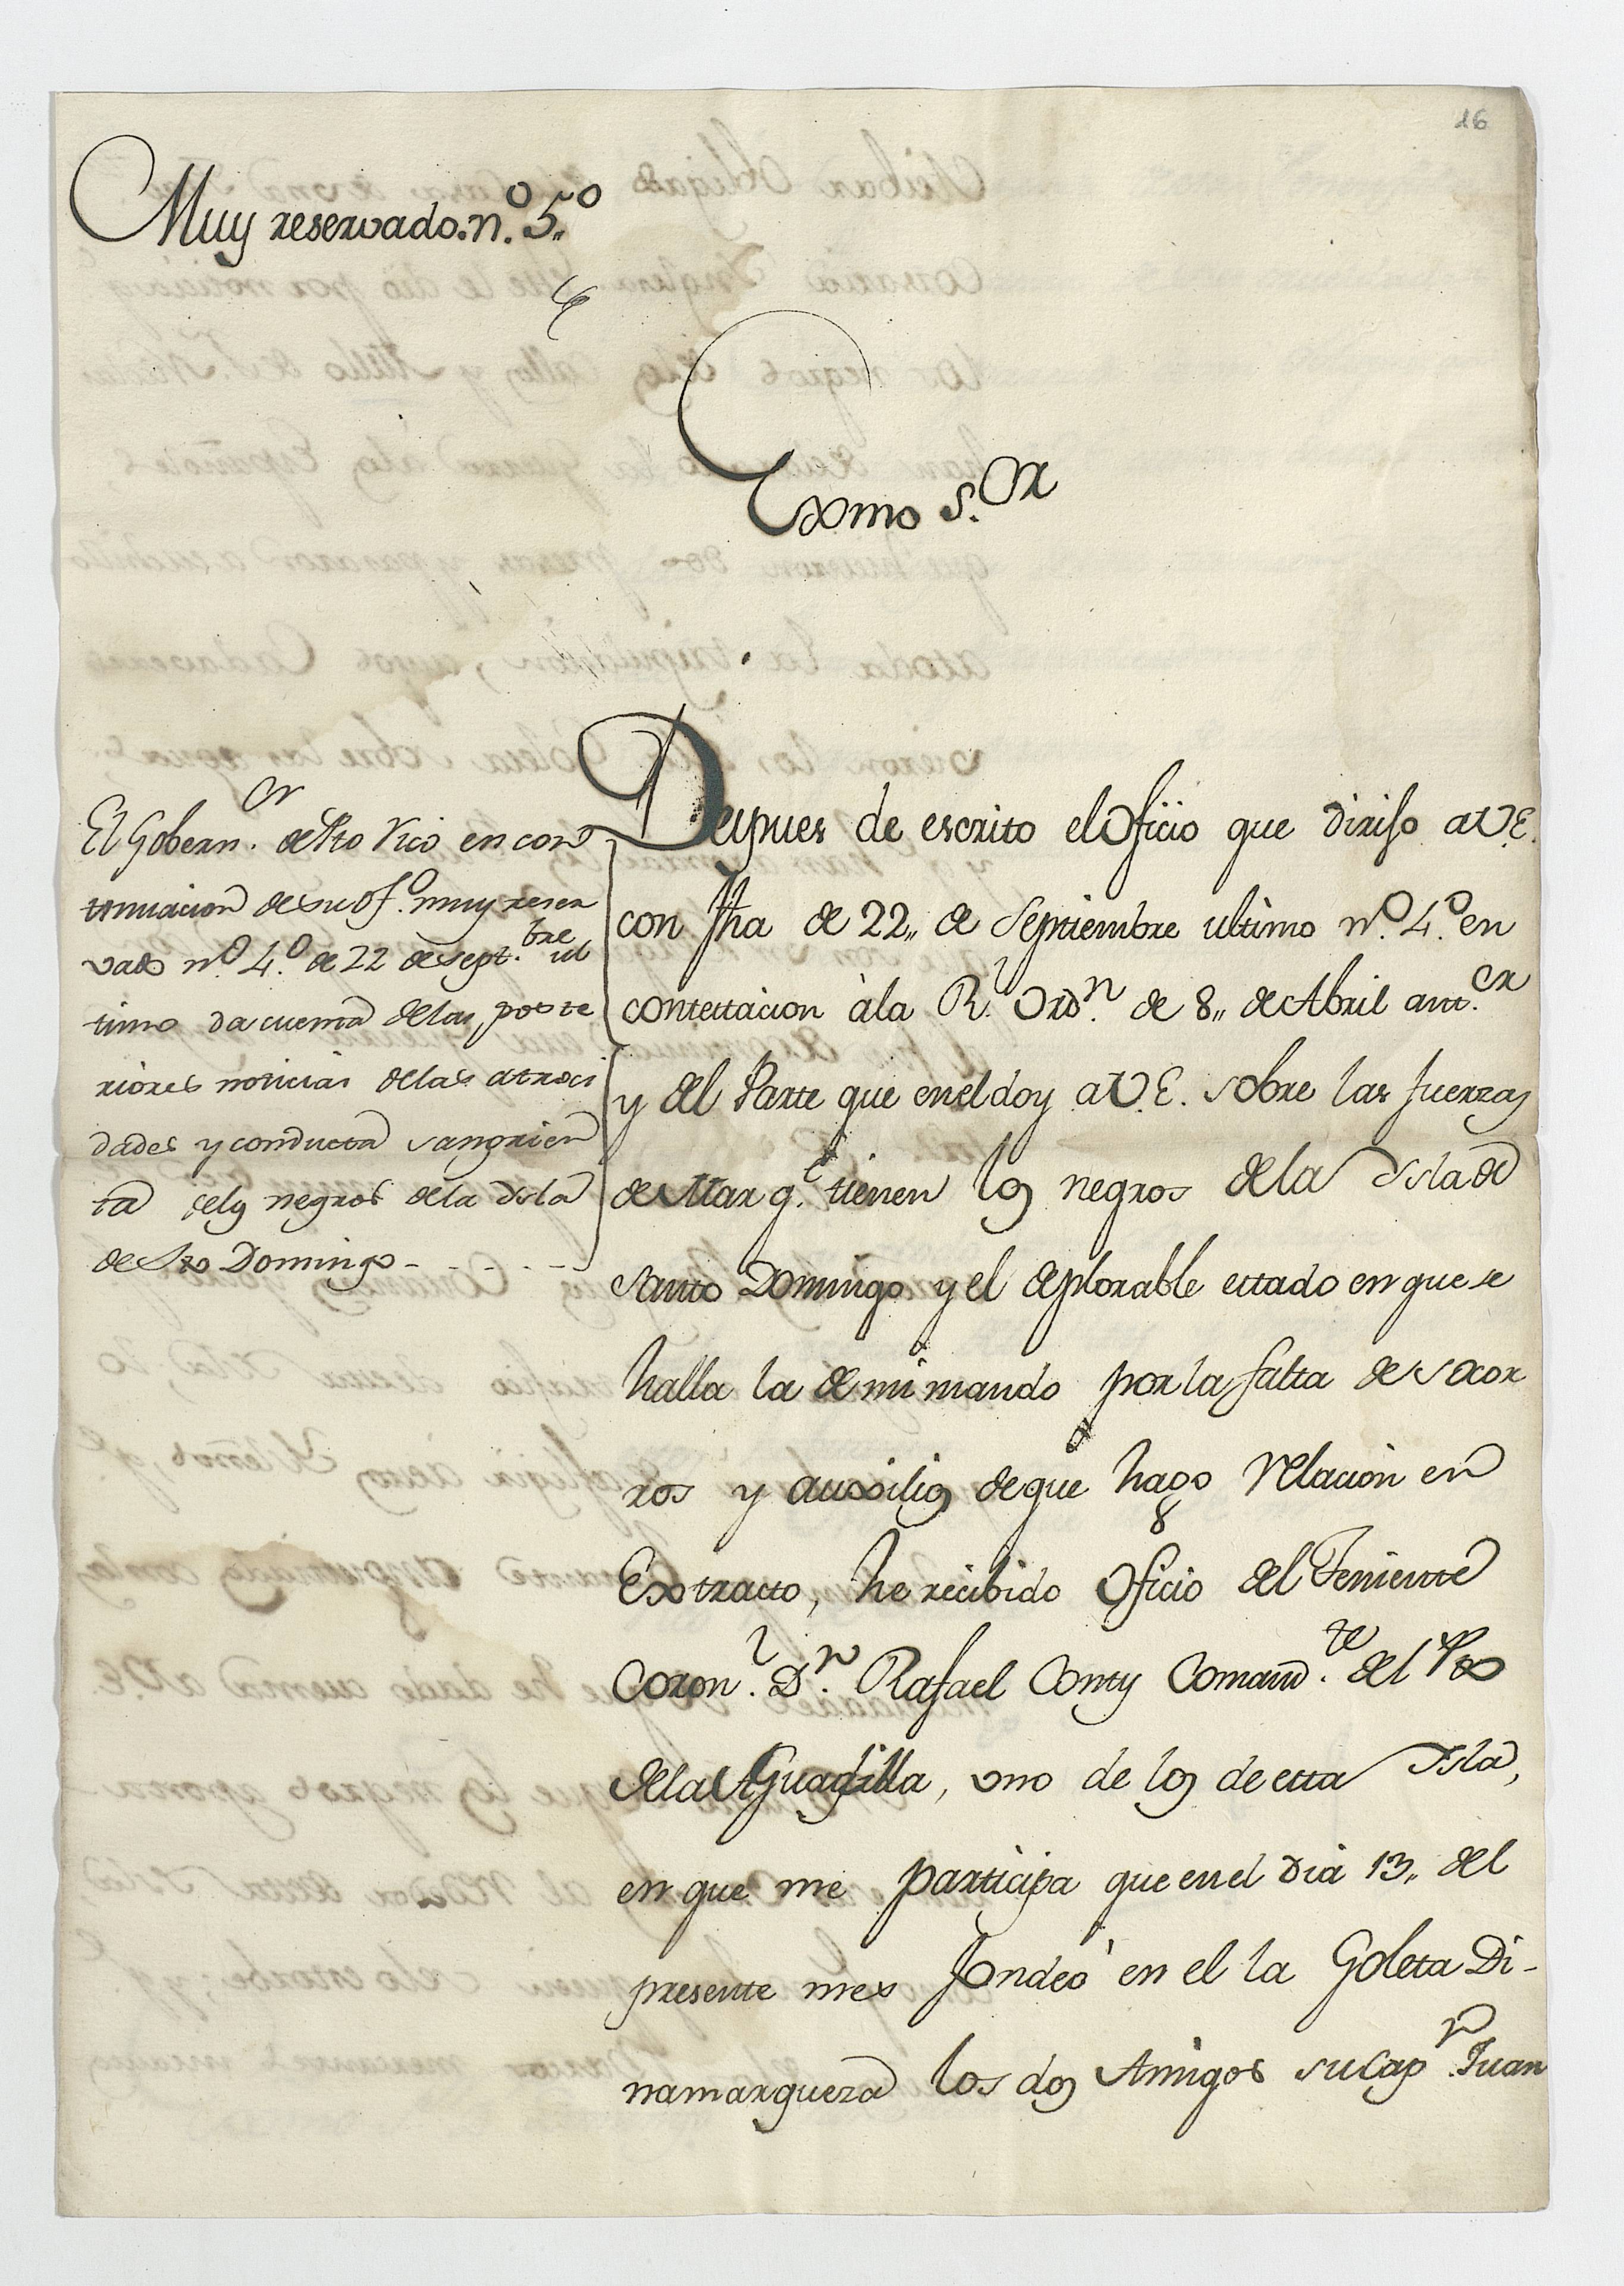 16
Muy reservado. n.º 5.º
Exmo S.or
El Gobern.or de Pto Rico en con
tinuacion de su Of.º muy reser
vado nº 4.º de 22 de Sept.bre ul
timo da cuenta de las poste
riores noticias de las atroci
dades y conducta sangrien
ta de los negros de la Ysla
de Sto Domingo - - - - -
Despues de escrito el Oficio que dirijo a V.E.
con fha de 22,, de Septiembre ultimo nº. 4.º en
contestacion à la R.l Ord.n de 8,, de Abril ant.or
y del Parte que en el doy a V.E. sobre las fuerzas
de Mar q.e tienen los negros de la Ysla de
Santo Domingo y el deplorable estado en que se
halla la de mi mando por la falta de socor
ros y auxilios de que hago relacion en
Extracto, he recibido Oficio del Teniente
Coron.l D.n Rafael Conty Comand.te del Pto
de la Aguadilla, uno de los de esta Ysla,
en que me participa que en el dia 13,, del
presente mes fondeò en el la Goleta Di-
namarqueza los dos Amigos su Cap.n Juan